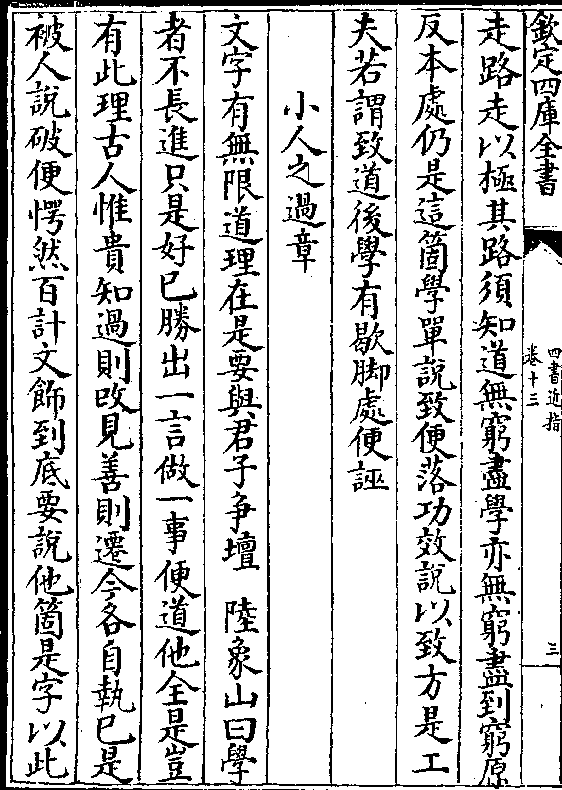 欽定四庫全書
四書近指
卷十三
三
走路走以極其路須知道無窮盡學亦無窮盡到窮原
反本處仍是這箇學單說致便落功效說以致方是工
夫若謂致道後學有歇脚處便誣
小人之過章
文字有無限道理在是要與君子争壇　陸象山曰學
者不長進只是好已勝出一言做一事便道他全是豈
有此理古人惟貴知過則改見善則遷今各自執已是
被人說破便愕然百計文飾到底要說他箇是字以此